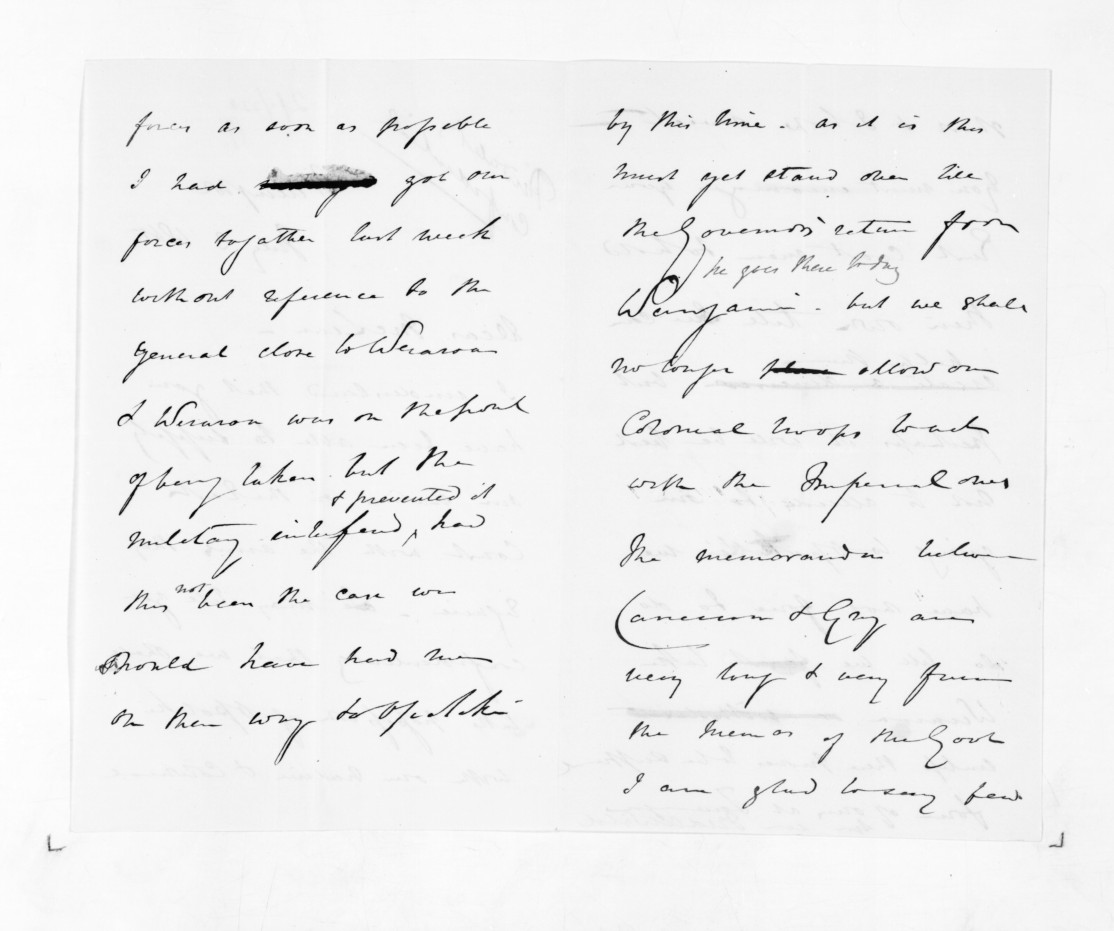 forces as soon as possible
I had got our
forces together last week
without reference to the
general close to Weraroa
& Weraroa was on the point
of being taken but the
& prevented it
military interfered, had
this not been the case we
should have had men
on their way to Opotiki
by this time - as it is this
must yet stand over till
the Governor's return from
he goes there today
Wanganui - but we shall
no longer allow our
Colonial troops to act
with the Imperial ones
The memoranda between
Cameron & Grey are
very long & very firm
the memos of the Govt
I am glad to say few